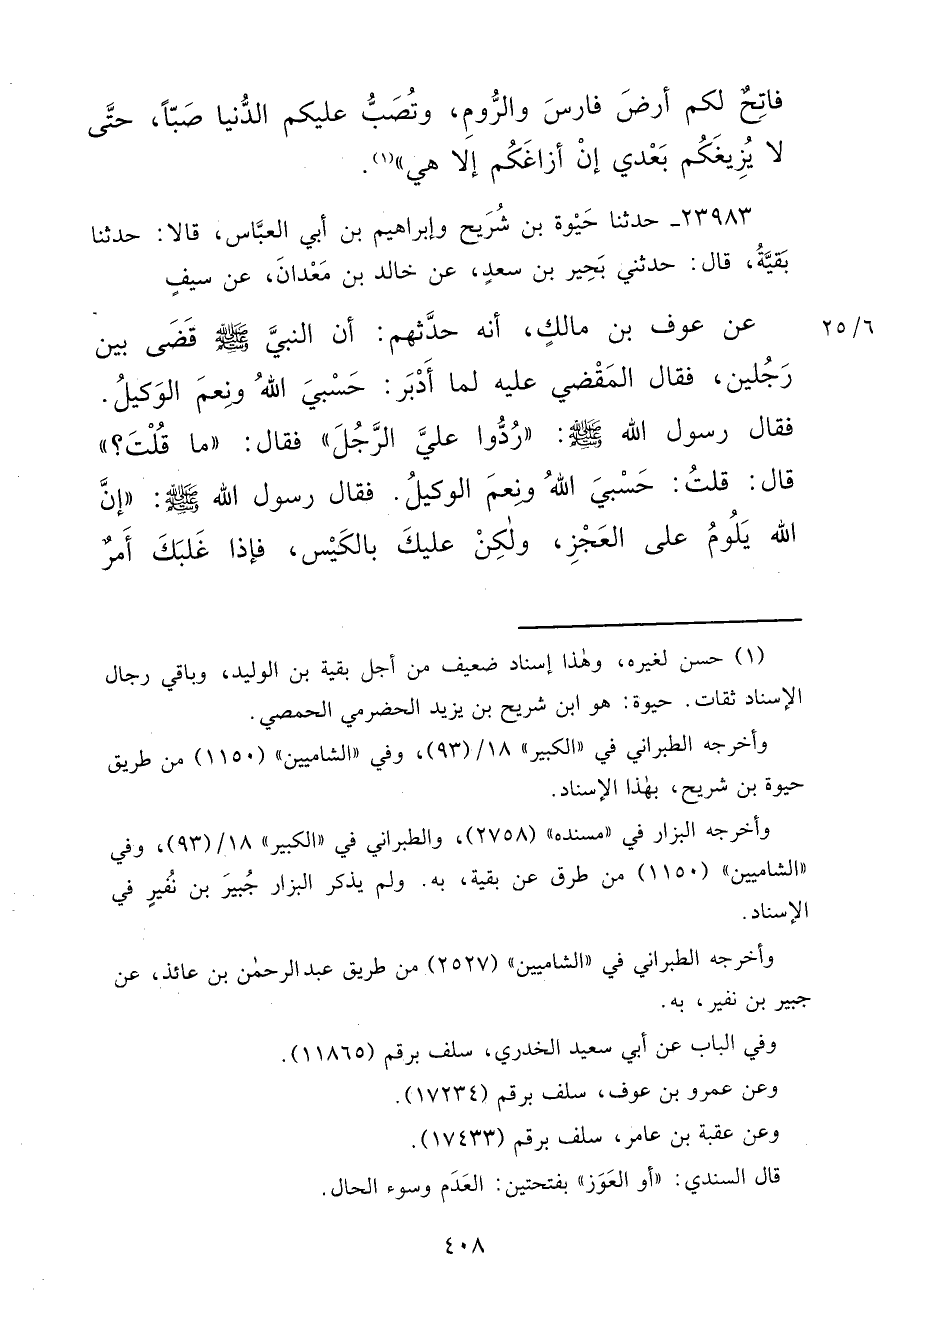 فاتِحٌ لكم أرضَ فارسَ والرُّومِ، وتُصَبُّ عليكم الدُّنيا صَبّاً، حتَّى
لا يُزِيغَكُم بَعْدي إنْ أزاغَكُم إلا هي»(١).
٢٣٩٨٣ـ حدثنا حَيْوة بن شُرَيح وإبراهيم بن أبي العبَّاس، قالا: حدثنا
بَقيَّةُ، قال: حدثني بَحِير بن سعدٍ، عن خالد بن مَعْدانَ، عن سيفٍ
عن عوف بن مالكٍ، أنه حدَّثهم: أن النبيَّ ﷺ قَضَى بين
٢٥/٦
رَجُلين، فقال المَقْضي عليه لما أَدْبَر: حَسْبيَ اللهُ ونِعمَ الوَكيلُ.
فقال رسول الله ﷺ: «رُدُّوا عليَّ الرَّجُلَ» فقال: «ما قُلْتَ؟»
قال: قلتُ: حَسْبيَ اللهُ ونِعمَ الوكيلُ. فقال رسول الله ﷺ: «إنَّ
الله يَلُومُ على العَجْزِ، ولٰكِنْ عليكَ بالكَيْس، فإذا غَلبَكَ أَمرٌ
(١) حسن لغيره، وهٰذا إسناد ضعيف من أجل بقية بن الوليد، وباقي رجال
الإسناد ثقات. حيوة: هو ابن شريح بن يزيد الحضرمي الحمصي.
وأخرجه الطبراني في «الكبير» ١٨/(٩٣)، وفي «الشاميين» (١١٥٠) من طريق
حيوة بن شريح، بهٰذا الإسناد.
وأخرجه البزار في «مسنده» (٢٧٥٨)، والطبراني في «الكبير» ١٨/(٩٣)، وفي
«الشاميين» (١١٥٠) من طرق عن بقية، به. ولم يذكر البزار جُبيرَ بن نُفيرٍ في
الإسناد.
وأخرجه الطبراني في «الشاميين» (٢٥٢٧) من طريق عبدالرحمٰن بن عائذ، عن
جبير بن نفير، به.
وفي الباب عن أبي سعيد الخدري، سلف برقم (١١٨٦٥).
وعن عمرو بن عوف، سلف برقم (١٧٢٣٤).
وعن عقبة بن عامر، سلف برقم (١٧٤٣٣).
قال السندي: «أو العَوَز» بفتحتين: العَدَم وسوء الحال.
٤٠٨